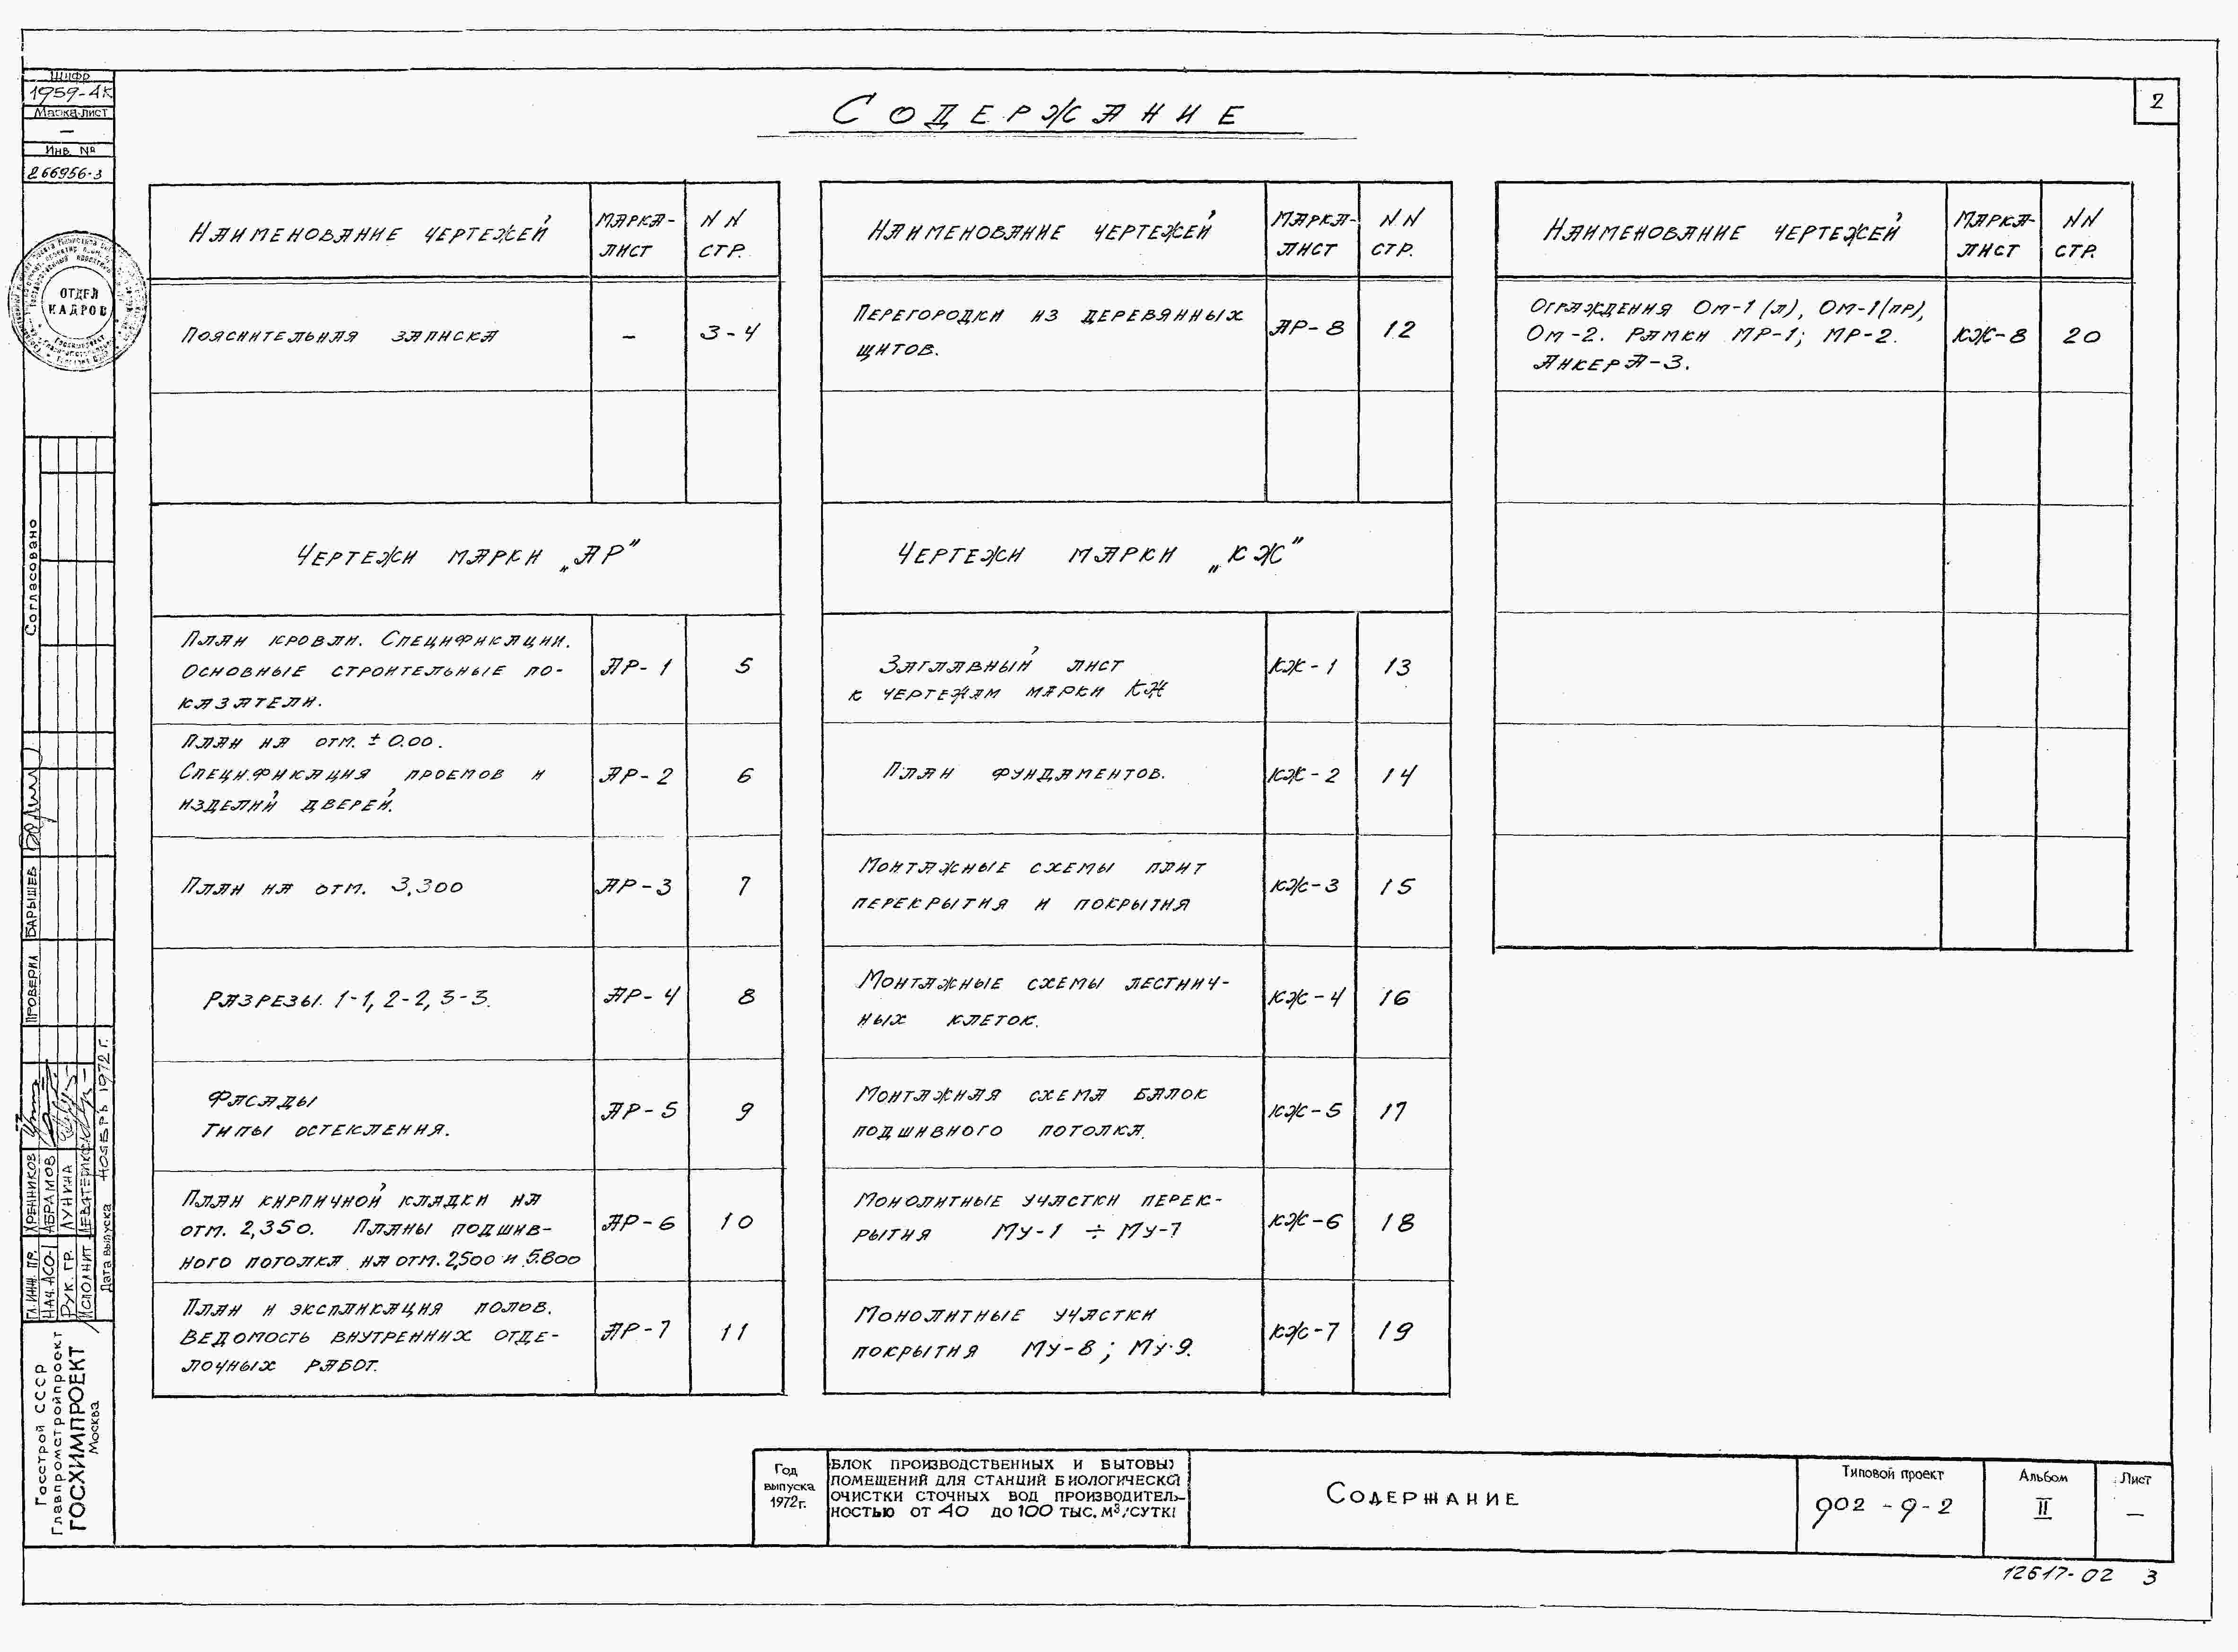 Шифр
1959-АК
Марка-лист
—
Инв. №
266956-3
ОТДЕЛ
КАДРОВ
Согласовано
Проверил Барышев
Гл. инж. пр. Хренников
Нач. АСО-1 Абрамов
Рук. гр. Лунина
Исполнит
Дата выпуска ноябрь 1972 г.
Госстрой СССР
Главпромстройпроект
ГОСХИМПРОЕКТ
Москва
2
Содержание
Наименование чертежей Марка-лист NN стр.
Пояснительная записка — 3-4
Чертежи марки „АР"
План кровли. Спецификации.
Основные строительные по- АР-1 5
казатели.
План на отм. ± 0.00.
Спецификация проемов и АР-2 6
изделий дверей.
План на отм. 3,300 АР-3 7
Разрезы 1-1, 2-2, 3-3. АР-4 8
Фасады
Типы остекления. АР-5 9
План кирпичной кладки на
отм. 2,350. Планы подшив- АР-6 10
ного потолка на отм. 2,500 и 5.800
План и экспликация полов.
Ведомость внутренних отде- АР-7 11
лочных работ.
Наименование чертежей Марка-лист NN стр.
Перегородки из деревянных АР-8 12
щитов.
Чертежи марки „КЖ"
Заглавный лист КЖ-1 13
к чертежам марки КЖ
План фундаментов. КЖ-2 14
Монтажные схемы плит КЖ-3 15
перекрытия и покрытия
Монтажные схемы лестнич- КЖ-4 16
ных клеток.
Монтажная схема балок КЖ-5 17
подшивного потолка.
Монолитные участки перек- КЖ-6 18
рытия Му-1 ÷ Му-7
Монолитные участки КЖ-7 19
покрытия Му-8; Му-9.
Наименование чертежей Марка-лист NN стр.
Ограждения Ом-1(л), Ом-1(пр),
Ом-2. Рамки МР-1; МР-2. КЖ-8 20
Анкер А-3.
Год
выпуска
1972г.
БЛОК ПРОИЗВОДСТВЕННЫХ И БЫТОВЫХ
ПОМЕЩЕНИЙ ДЛЯ СТАНЦИЙ БИОЛОГИЧЕСКОЙ
ОЧИСТКИ СТОЧНЫХ ВОД ПРОИЗВОДИТЕЛЬ-
НОСТЬЮ ОТ 40 ДО 100 ТЫС. М³/СУТКИ
Содержание
Типовой проект
902-9-2
Альбом
II
Лист
—
12617-02 3